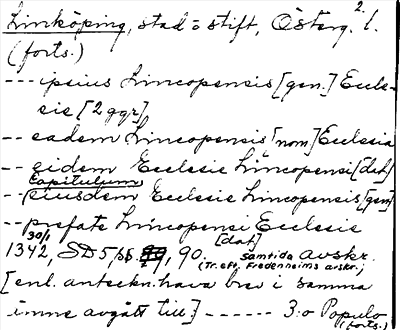 Linköping, stad o stift, Österg. 2 l.
(forts.)
--- ipsius Lincopensis [gen.] Eccle-
sie [2 ggr]
-- eadem Lincopensis [nom] Ecclesia
-- eidem Ecclesie Lincopensi [dat]
Capitulum
-- ejusdem Ecclesie Lincopensis [gen]
-- prefate Lincopensi Ecclesie
[dat]
30/1
1342, SD 5, ss. 90. samtida avskr.
(Tr. eft. Fredenheims avskr.;
[enl. anteckn. hava brev i samma
ämne avgått till] ------ 3:o Populo
(forts.)